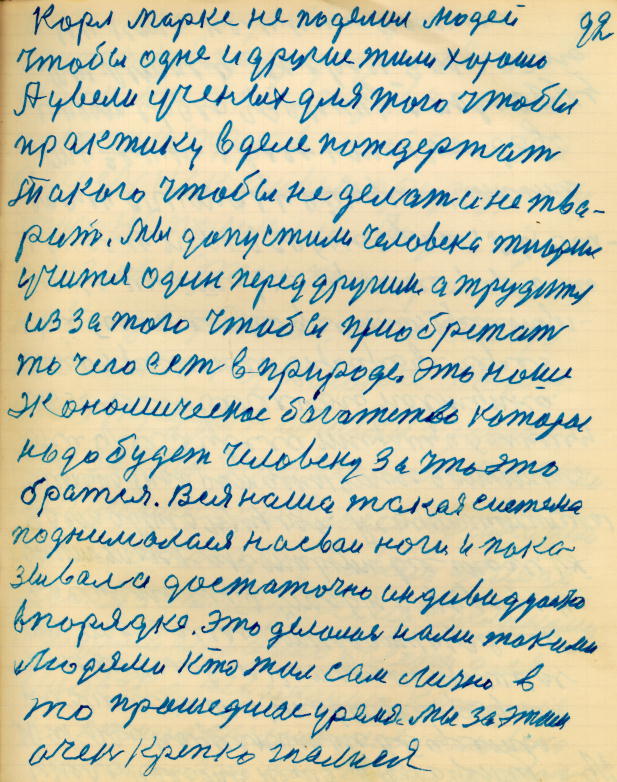 Корл Маркс не поделил людей 92
чтобы одне и другие жили хорошо
А увели ученых для того чтобы
практику в деле пождержат
такого чтобы не делат и не тва-
рит. Мы допустили человека тиории
учится один перед другим а трудится
из за того чтобы приобретат
то чего ест в природе. Это наше
Экономическое багатство которое
надо будет человеку за что это
братся. Вся наша такая система
поднималася на сваи ноги и пока
зывала достаточно индивидуально
в порядке. Это делалось нами такими
людями кто жил сам лично в
то прошедшее уремя. Мы за этим
очен крепко гналися